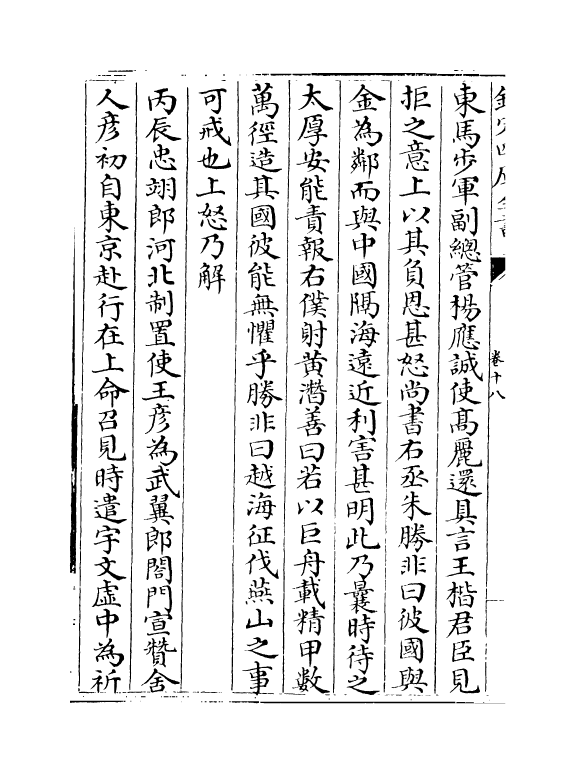 欽定四庫全書
卷十八
東馬步軍副總管揚應誠使髙麗還具言王楷君臣見
拒之意上以其負恩甚怒尚書右丞朱勝非曰彼國與
金為鄰而與中國隔海遠近利害甚明此乃曩時待之
太厚安能責報右僕射黄潛善曰若以巨舟載精甲數
萬徑造其國彼能無懼乎勝非曰越海征伐燕山之事
可戒也上怒乃解
丙辰忠翊郎河北制置使王彦為武翼郎閤門宣贊舍
人彦初自東京赴行在上命召見時遣宇文虛中為祈